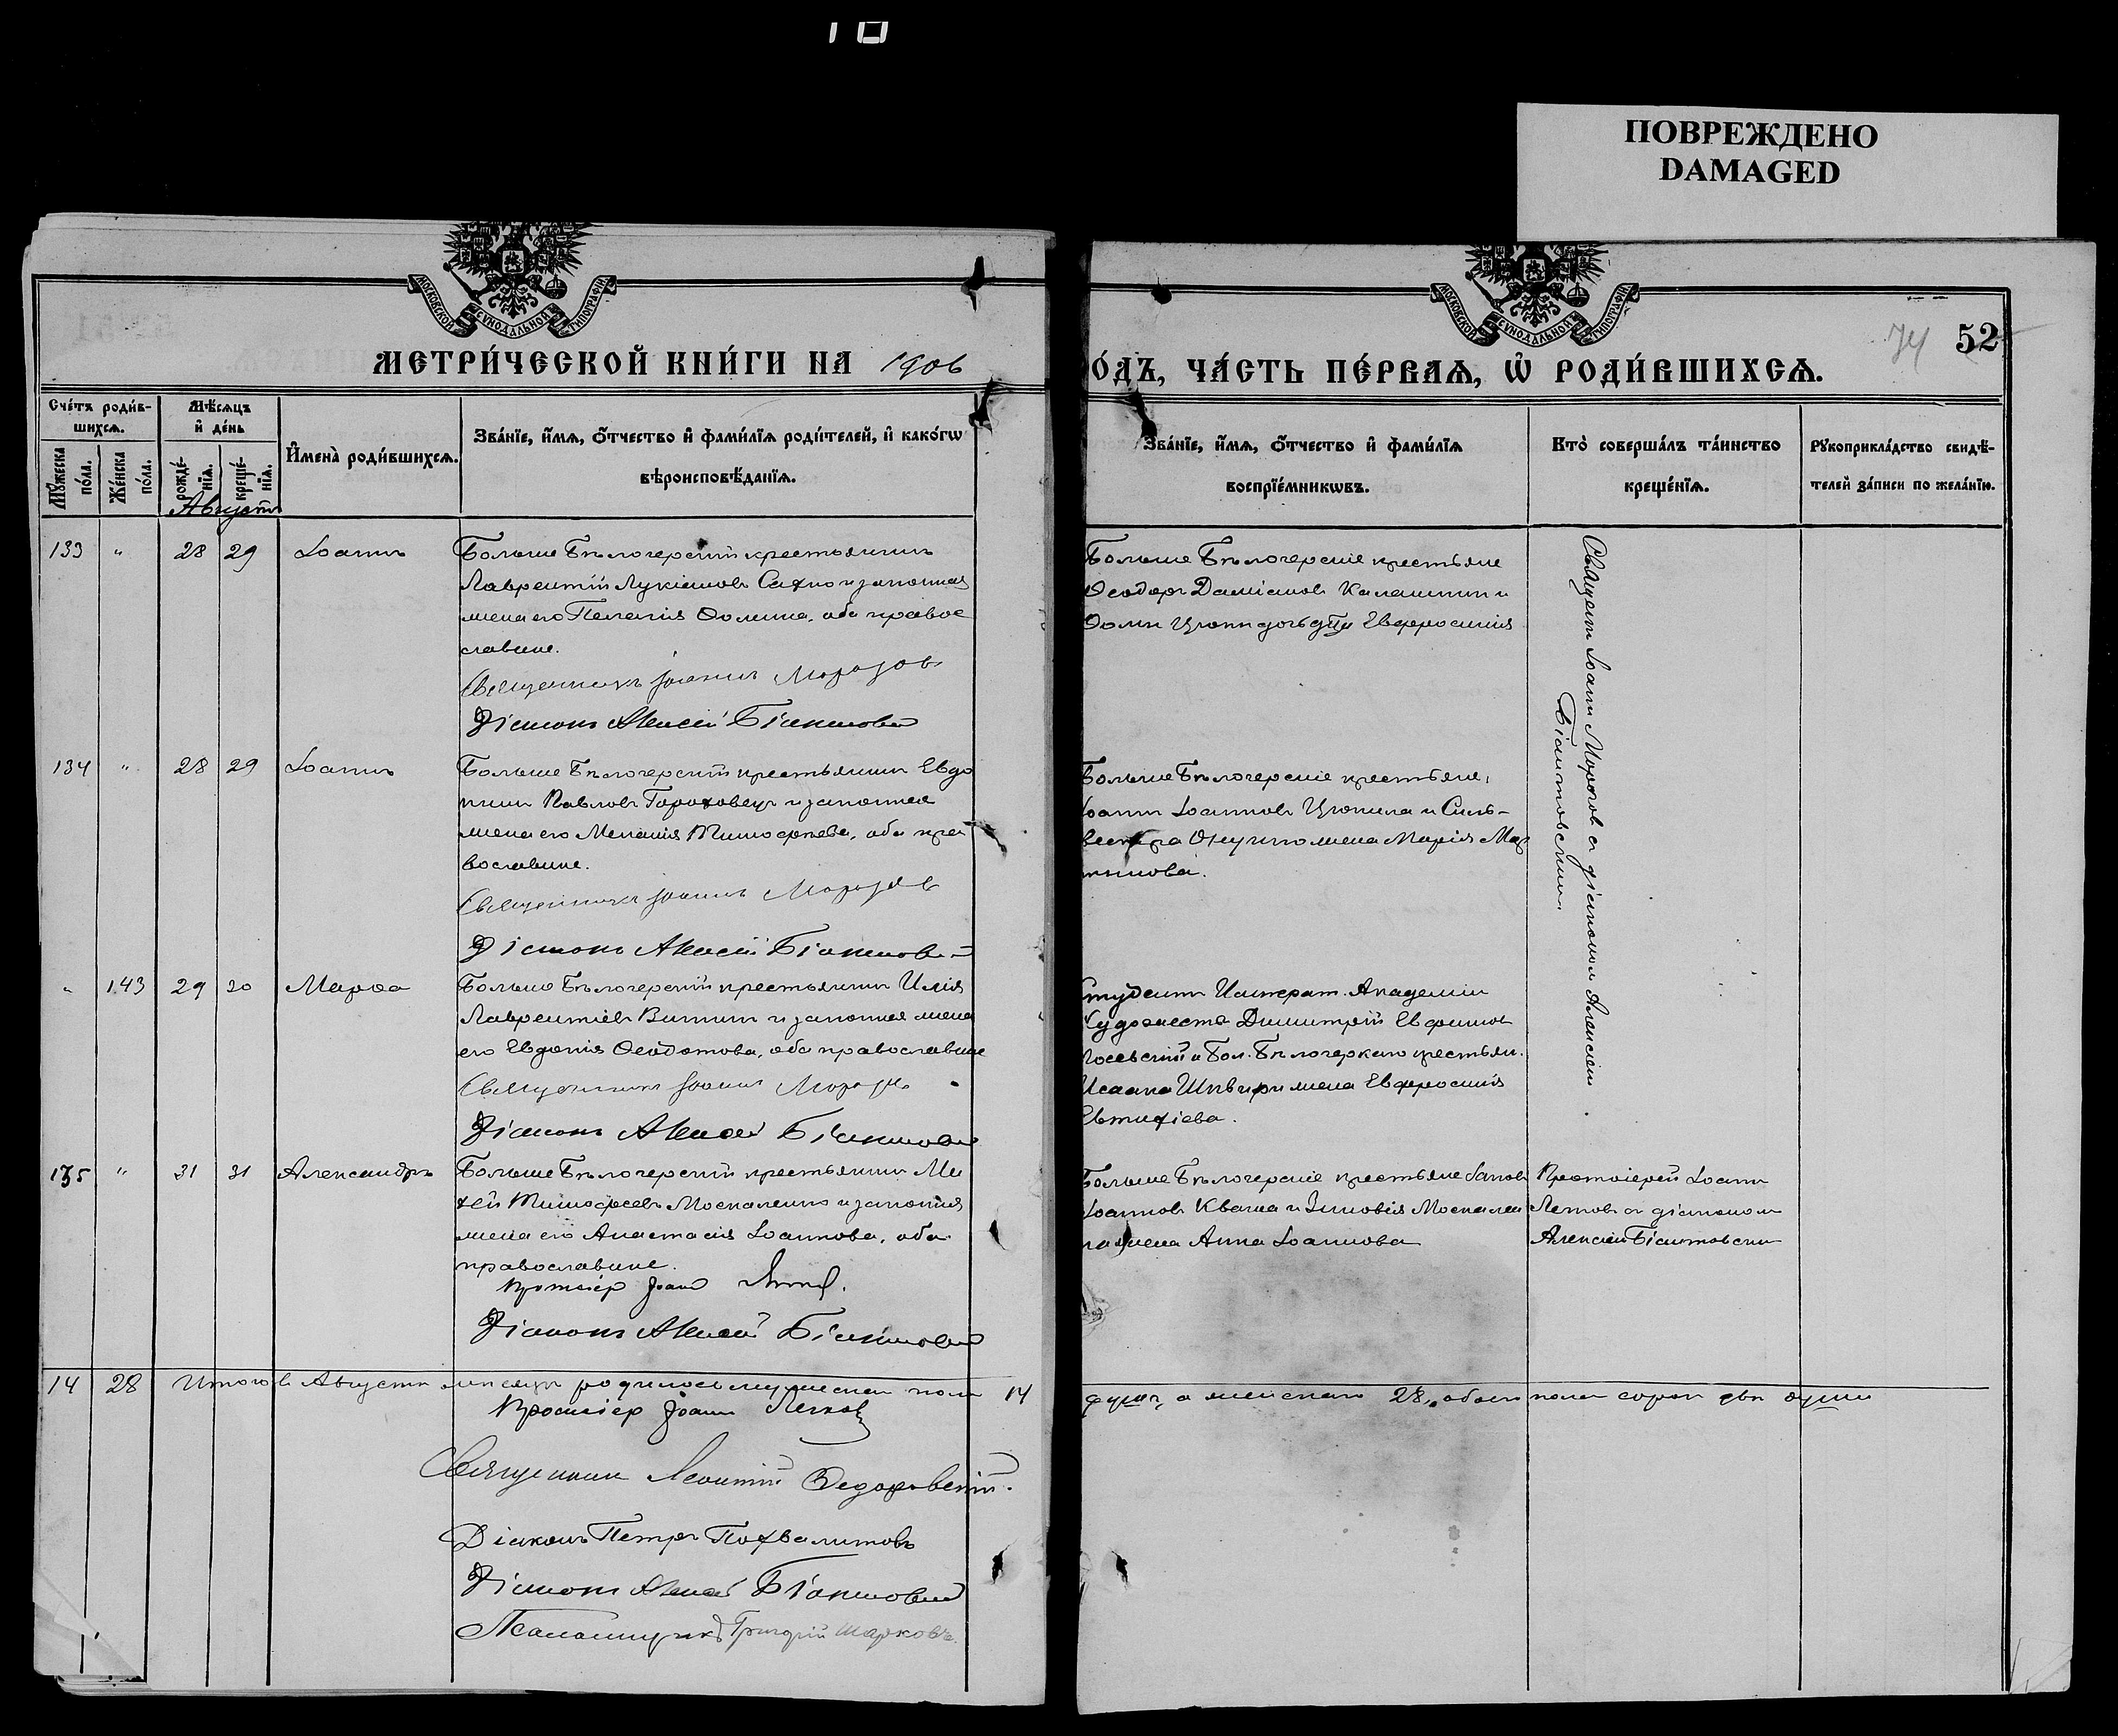 ПОВРЕЖДЕНО
DAMAGED
МОСКОВСКОЙ СѴНОДАЛЬНОЙ ТИПОГРАФІИ
МОСКОВСКОЙ СѴНОДАЛЬНОЙ ТИПОГРАФІИ
74 52
МЕТРИ́ЧЕСКОЙ КНИ́ГИ НА 1906
О́ДЪ, ЧА́СТЬ ПЕ́РВАѦ, Ѡ҆ РОДИ́ВШИХСѦ.
Сче́тъ роди́в-
шихсѧ.
Мꙋ́жеска по́ла.
Же́нска по́ла.
Мѣ́сѧцъ
и҆ де́нь
рожде́-нїѧ.
креще́-нїѧ.
Августъ
И҆мена̀ роди́вшихсѧ.
Зва́нїе, и҆́мѧ, ѻ҆́тчество и҆ фами́лїѧ роди́телей, и҆ како́гѡ
вѣроисповѣ́данїѧ.
Зва́нїе, и҆́мѧ, ѻ҆́тчество и҆ фами́лїѧ
воспрїе́мникѡвъ.
Кто̀ соверша́лъ та́инство
креще́нїѧ.
Рꙋкоприкла́дство свидѣ́-
телей за́писи по жела́нїю.
133 " 28 29 Іоаннъ
Больше Бѣлозерскій крестьянинъ
Лаврентій Лукіановъ Сахно и законная
жена его Пелагія Ѳомина, оба право
славные.
Священникъ Іоаннъ Морозов
Діаконъ Алексій Біантовскій
Больше Бѣлозерскіе крестьяне
Ѳеодоръ Даміановъ Калашник и
Ѳомы дочь дѣв Евфросинія
Священ Іоанн Морозов съ діаконом Алексіем
Біантовскимъ
134 " 28 29 Іоаннъ
Больше Бѣлозерскій крестьянинъ Евдо
кимъ Павловъ Гороховецъ и законная
жена его Меланія Тимофеева, оба пра
вославные.
Священникъ Іоаннъ Морозов
Діаконъ Алексій Біантовскій
Больше Бѣлозерскіе крестьяне,
Іоанн Іоаннов и Силь-
вестра жена Марія Мар
тинова.
" 143 29 30 Марѳа
Больше Бѣлозерскій крестьянинъ Илія
Лаврентіев и законная жена
его Евдокія Ѳеодотова, оба православные
Священникъ Іоаннъ Морозов
Діаконъ Алексій Біантовскій
Студентъ Императ. Академіи
Художествъ Димитрій Ефимов
и Бол. Бѣлозерскаго крестьян.
Исаака жена Евфросинія
Евтихіева.
135 " 31 31 Александръ
Больше Бѣлозерскій крестьянинъ Ми
хей Тимофеевъ Москаленко и законная
жена его Анастасія Іоаннова, оба
православные.
Протоіер Іоанн
Діаконъ Алексій Біантовскій
Больше Бѣлозерскіе крестьяне
Іоаннов Кваша и Зиновія Москален
ка жена Анна Іоаннова
Протоіерей Іоанн
съ діаконом
Алексіем Біантовским
14 28 Итого въ Августѣ мѣсяцѣ родилось мужескаго пола 14
душъ, а женскаго 28, обоего пола сорокъ двѣ души
Протоіер Іоанн
Священникъ Леонтій
Діаконъ Петръ Похвалитовъ
Діаконъ Алексій Біантовскій
Псаломщикъ Григорій Марковъ.